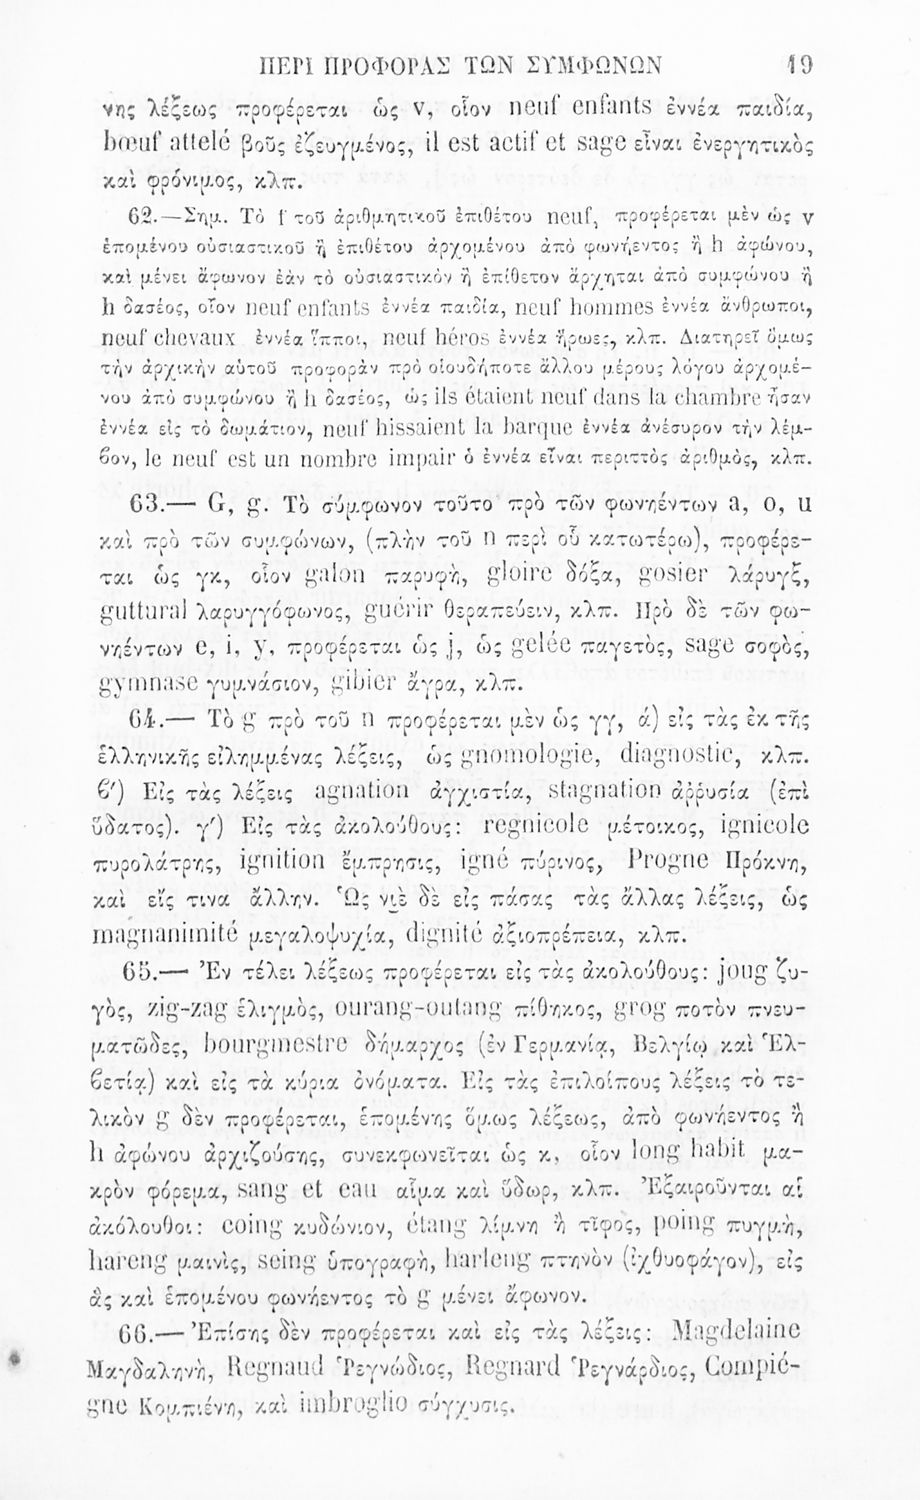 ΠΕΡΙ ΠΡΟΦΟΡΑΣ ΤΩΝ ΣΥΜΦΩΝΩΝ 19
νης λέξεως προφέρεται ὡς v, οἷον neuf enfants ἐννέα παιδία,
bœuf attelé βοῦς ἐζευγμένος, il est actif et sage εἶναι ἐνεργητικὸς
καὶ φρόνιμος, κλπ.
62.—Σημ. Τὸ f τοῦ ἀριθμητικοῦ ἐπιθέτου neuf, προφέρεται μὲν ὡς v
ἑπομένου οὐσιαστικοῦ ἢ ἐπιθέτου ἀρχομένου ἀπὸ φωνήεντος ἢ h ἀφώνου,
καὶ μένει ἄφωνον ἐὰν τὸ οὐσιαστικὸν ἢ ἐπίθετον ἄρχηται ἀπὸ συμφώνου ἢ
h δασέος, οἷον neuf enfants ἐννέα παιδία, neuf hommes ἐννέα ἄνθρωποι,
neuf chevaux ἐννέα ἵπποι, neuf héros ἐννέα ἥρωες, κλπ. Διατηρεῖ ὅμως
τὴν ἀρχικὴν αὐτοῦ προφορὰν πρὸ οἱουδήποτε ἄλλου μέρους λόγου ἀρχομέ-
νου ἀπὸ συμφώνου ἢ h δασέος, ὡς ils étaient neuf dans la chambre ἦσαν
ἐννέα εἰς τὸ δωμάτιον, neuf hissaient la barque ἐννέα ἀνέσυρον τὴν λέμ-
ϐον, le neuf est un nombre impair ὁ ἐννέα εἶναι περιττὸς ἀριθμὸς, κλπ.
63.— G, g. Τὸ σύμφωνον τοῦτο πρὸ τῶν φωνηέντων a, o, u
καὶ πρὸ τῶν συμφώνων, (πλὴν τοῦ n περὶ οὗ κατωτέρω), προφέρε-
ται ὡς γκ, οἷον galon παρυφὴ, gloire δόξα, gosier λάρυγξ,
guttural λαρυγγόφωνος, guérir θεραπεύειν, κλπ. Πρὸ δὲ τῶν φω-
νηέντων e, i, y, προφέρεται ὡς j, ὡς gelée παγετὸς, sage σοφὸς,
gymnase γυμνάσιον, gibier ἄγρα, κλπ.
64.— Τὸ g πρὸ τοῦ n προφέρεται μὲν ὡς γγ, ά) εἰς τὰς ἐκ τῆς
ἑλληνικῆς εἰλημμένας λέξεις, ὡς gnomologie, diagnostic, κλπ.
ϐ′) Εἰς τὰς λέξεις agnation ἀγχιστία, stagnation ἀῤῥυσία (ἐπὶ
ὕδατος). γ′) Εἰς τὰς ἀκολούθους: regnicole μέτοικος, ignicole
πυρολάτρης, ignition ἔμπρησις, igné πύρινος, Progne Πρόκνη,
καὶ εἴς τινα ἄλλην. Ὡς νιὲ δὲ εἰς πάσας τὰς ἄλλας λέξεις, ὡς
magnanimité μεγαλοψυχία, dignité ἀξιοπρέπεια, κλπ.
65.— Ἐν τέλει λέξεως προφέρεται εἰς τὰς ἀκολούθους: joug ζυ-
γὸς, zig-zag ἑλιγμὸς, ourang-outang πίθηκος, grog ποτὸν πνευ-
ματῶδες, bourgmestre δήμαρχος (ἐν Γερμανίᾳ, Βελγίῳ καὶ Ἑλ-
ϐετίᾳ) καὶ εἰς τὰ κύρια ὀνόματα. Εἰς τὰς ἐπιλοίπους λέξεις τὸ τε-
λικὸν g δὲν προφέρεται, ἑπομένης ὅμως λέξεως, ἀπὸ φωνήεντος ἢ
h ἀφώνου ἀρχιζούσης, συνεκφωνεῖται ὡς κ, οἷον long habit μα-
κρὸν φόρεμα, sang et eau αἷμα καὶ ὕδωρ, κλπ. Ἐξαιροῦνται αἱ
ἀκόλουθοι: coing κυδώνιον, étang λίμνη ἢ τῖφος, poing πυγμὴ,
hareng μαινὶς, seing ὑπογραφὴ, harleng πτηνὸν (ἰχθυοφάγον), εἰς
ἃς καὶ ἑπομένου φωνήεντος τὸ g μένει ἄφωνον.
66.— Ἐπίσης δὲν προφέρεται καὶ εἰς τὰς λέξεις: Magdelaine
Μαγδαληνὴ, Regnaud Ῥεγνώδιος, Regnard Ῥεγνάρδιος, Compié-
gne Κομπιένη, καὶ imbroglio σύγχυσις.